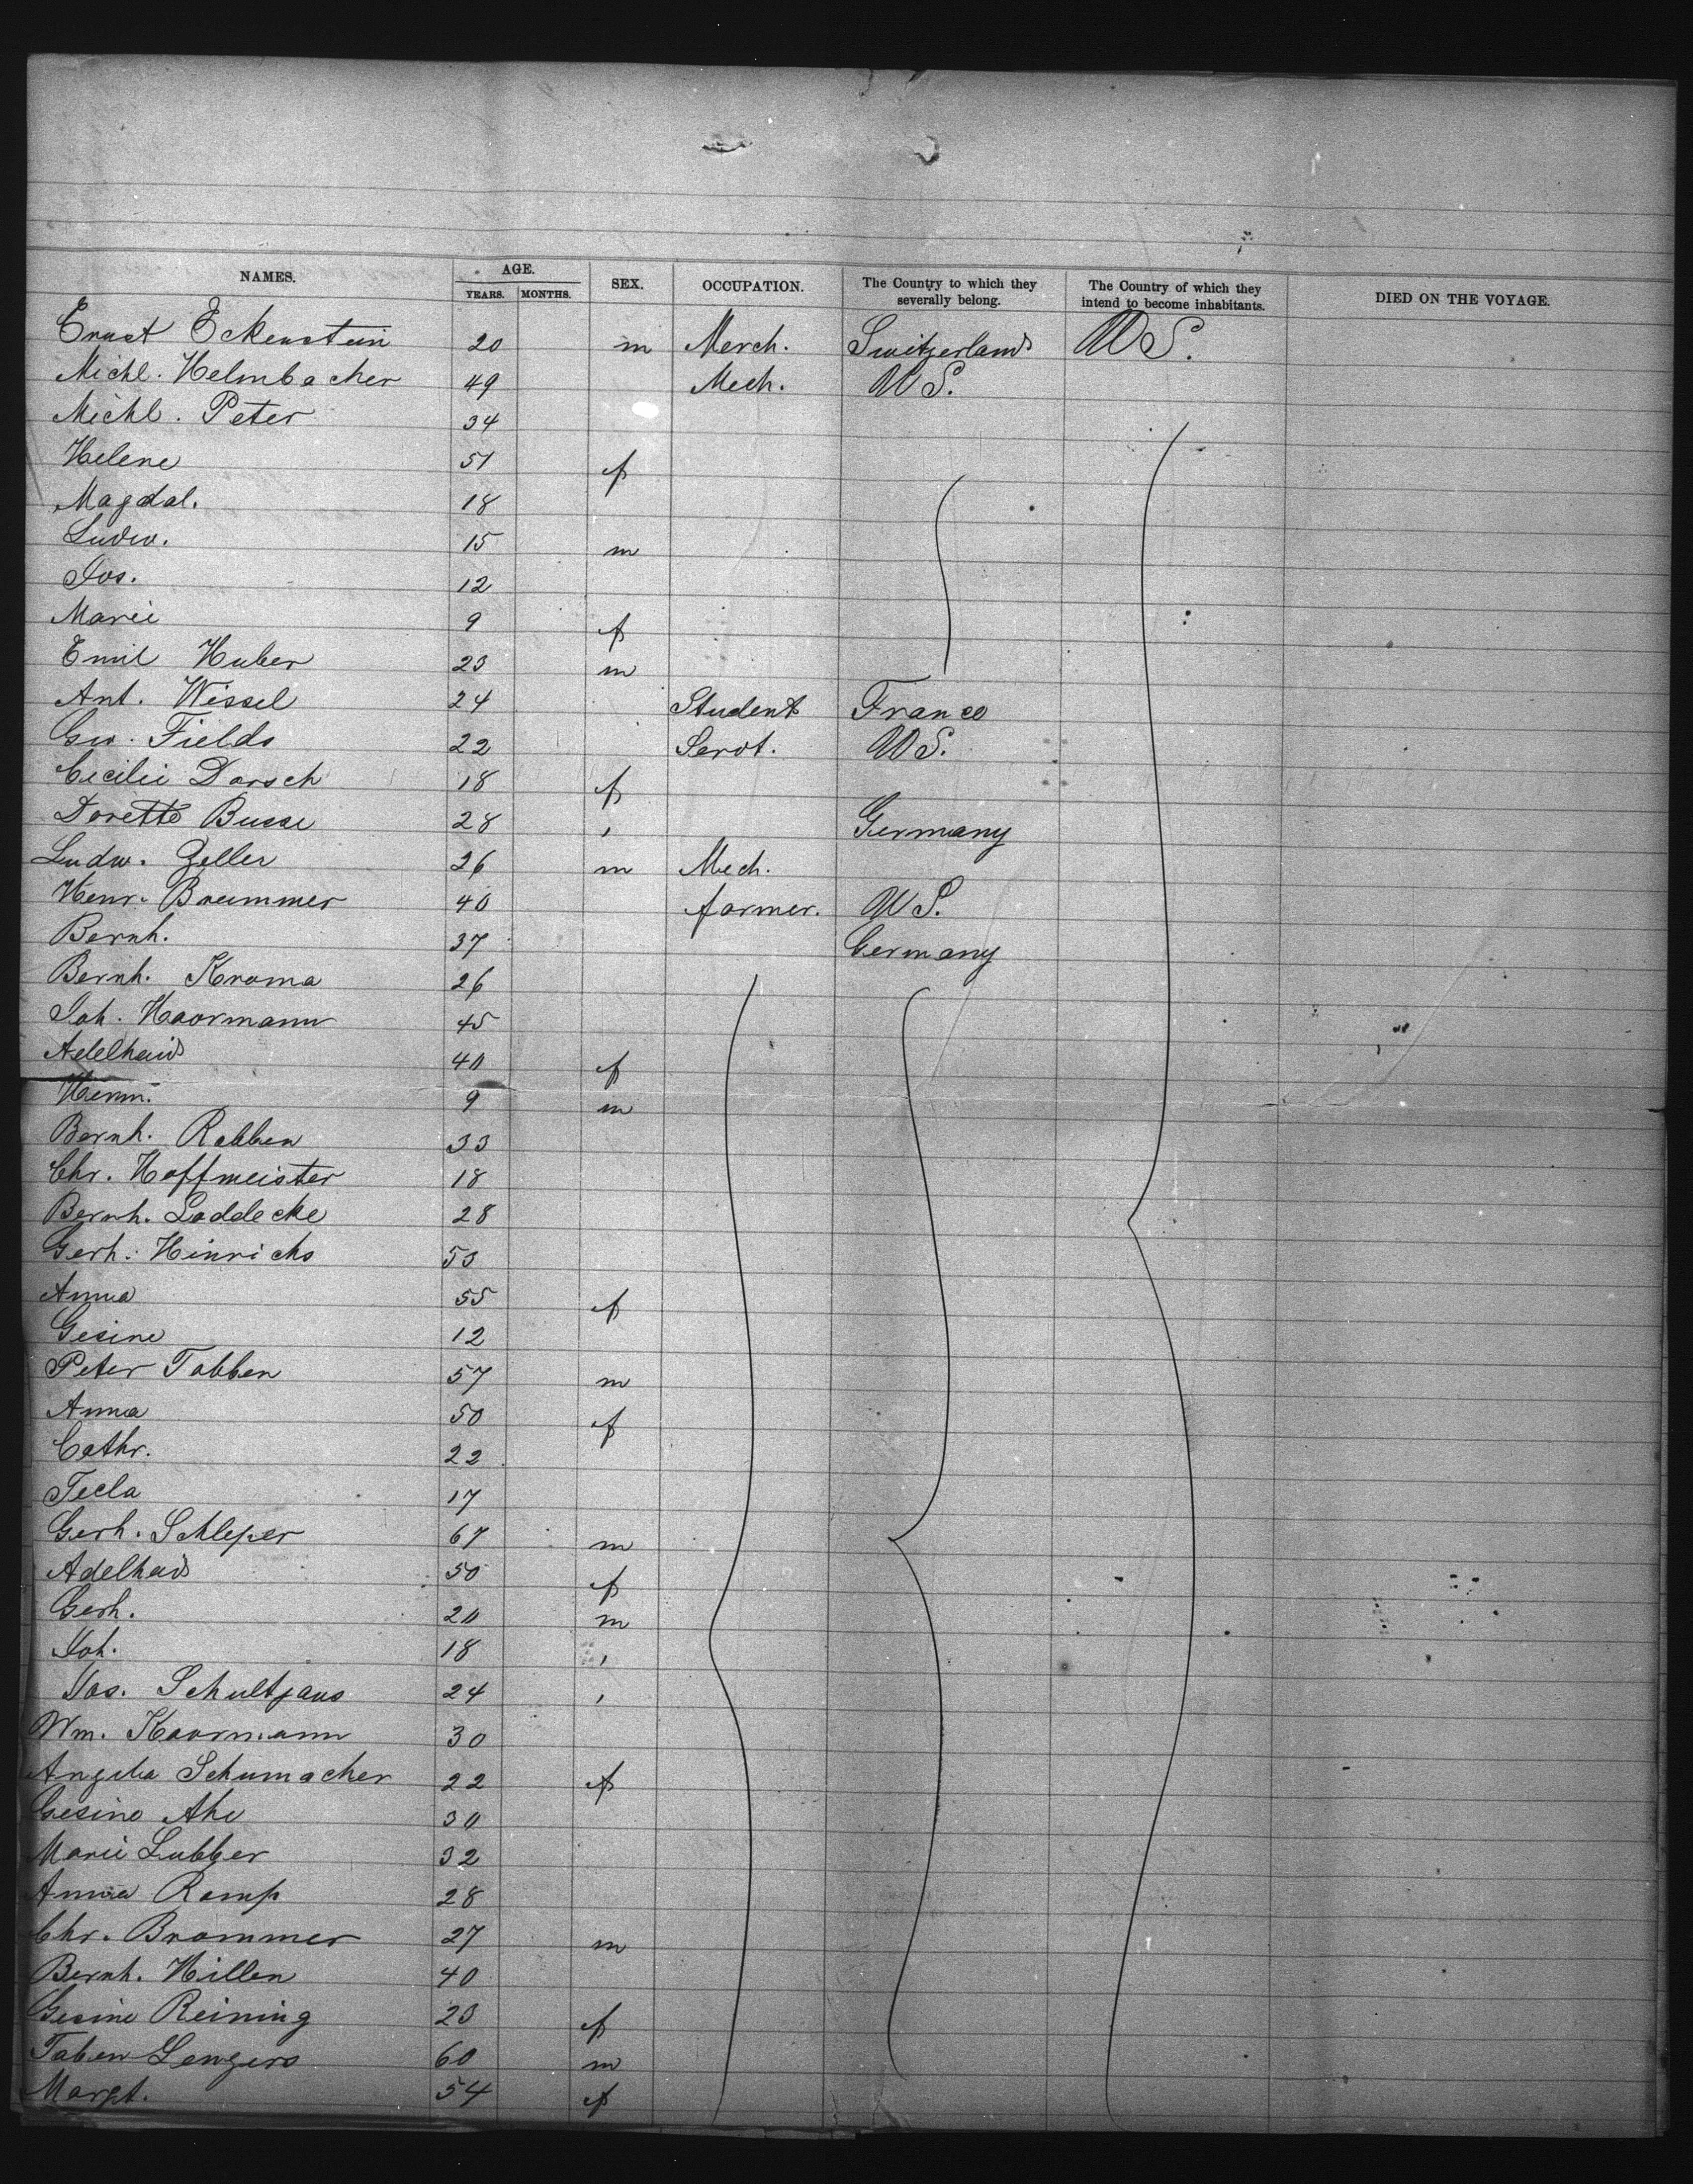 NAMES. AGE. SEX. OCCUPATION. The Country to which they severally belong. The Country of which they intend to become inhabitants. DIED ON THE VOYAGE.
YEARS. MONTHS.
Ernst Eckenstein 20 m Merch. Switzerland US.
Michl. Helmbacher 49 Mech. US.
Michl. Peter 34
Helene 51 f
Magdal. 18
Ludw. 15 m
Jos. 12
Marie 9 f
Emil Huber 23 m
Ant. Wissel 24 Student France
Geo. Fields 22 Servt. US.
Cecilie Dorsch 18 f
Dorette Busse 28 , Germany
Ludw. Zeller 26 m Mech.
Henr. Brummer 40 farmer. US.
Bernh. 37 Germany
Bernh. Kroma 26
Joh. Haormann 45
Adelheid 40 f
Herm. 9 m
Bernh. Robben 33
Chr. Hoffmeister 18
Bernh. Loddecke 28
Gerh. Hinrichs 53
Anna 55 f
Gesine 12
Peter Tobben 57 m
Anna 50 f
Cathr. 22
Tecla 17
Gerh. Schleper 67 m
Adelheid 50 f
Gerh. 20 m
Joh. 18 ,
Jos. Schultjans 24 ,
Wm. Koormann 30
Angela Schumacher 22 f
Gesine Ahe 30
Marie Lubber 32
Anna Romp 28
Chr. Brommer 27 m
Bernh. Hillen 40
Gesine Reining 23 f
Taben Lengers 60 m
Margt. 54 f